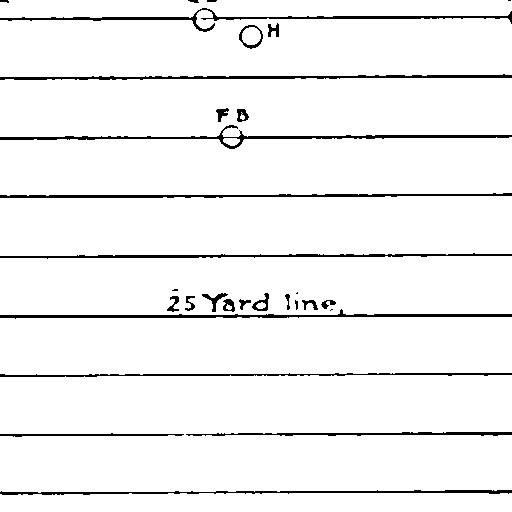 H
F B
25 Yard line.